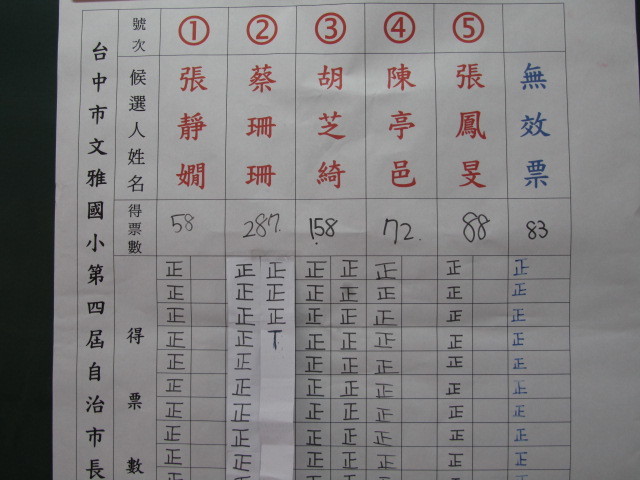 台中市文雅國小第四屆自治市長
號次 ① ② ③ ④ ⑤
候選人姓名 張靜嫺 蔡珊珊 胡芝綺 陳亭邑 張鳳旻 無效票
得票數 58 287. 158 72. 88 83
得票數
正 正 正 正 正 正 正 正 正
正 正 正 正 正 正 正 正 正
正 正 正 正 正 正 正 正 正
正 正 T 正 正 正 正 正
正 正 正 正 正 正 正
正 正 正 正 正 正 正
正 正 正 正 正 正 正
正 正 正 正 正 正 正
正 正 正 正 正 正 正
正 正 正 正 正 正 正